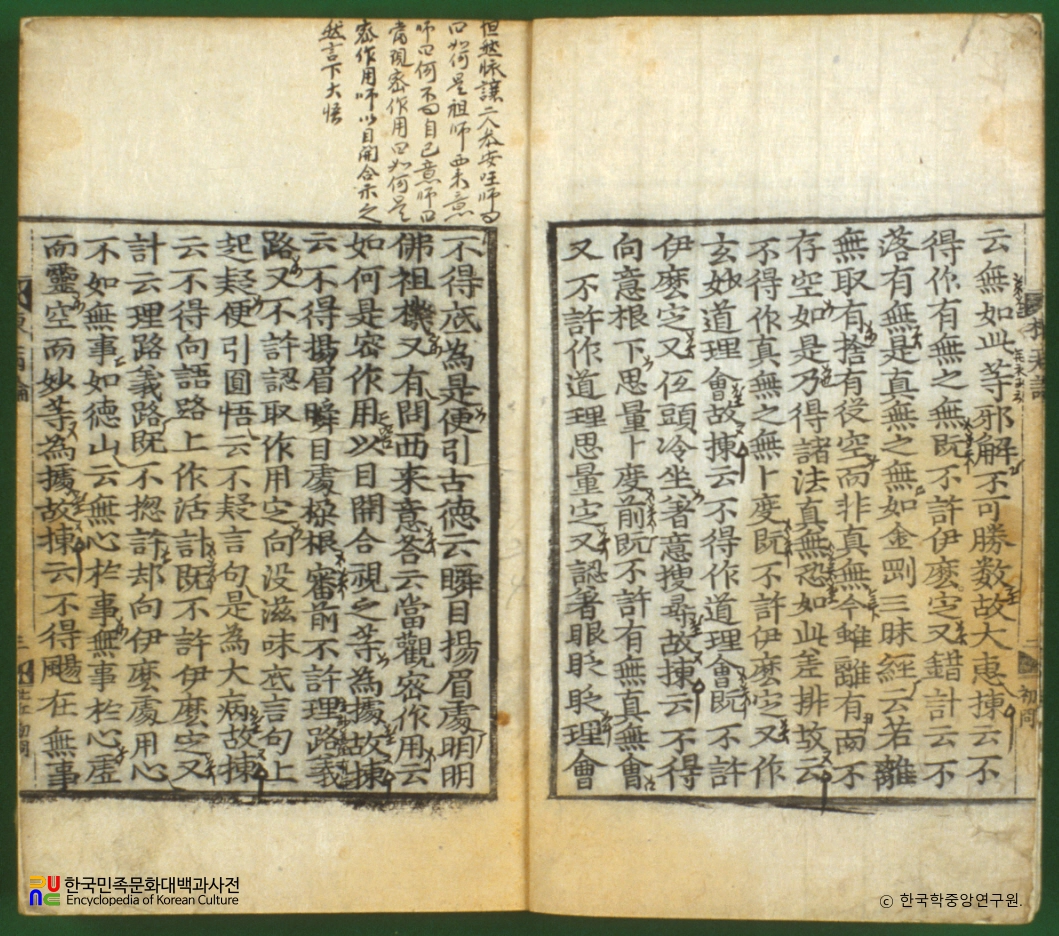 云無如此等邪解不可勝數故大惠揀云不
得作有無之無旣不許伊麽定又錯計云不
落有無是真無之無如金剛三昧經云若離
無取有捨有從空而非真無今雖離有而不
存空如是乃得諸法真無恐如此差排故云
不得作真無之無卜度旣不許伊麽定又作
玄妙道理會故揀云不得作道理會旣不許
伊麽定又伍頭冷坐著意搜尋故揀云不得
向意根下思量卜度前旣不許有無真無會
又不許作道理思量定又認著眼眨眨理會
但然脉讓二人叅安
曰如何是祖師西來意
師曰何不曰自己意師曰
當現密作用曰如何是
密作用師以目開合示之
然言下大悟
不得底為是便引古德云瞬目揚眉處明明
佛祖機又有問西来意答云當觀密作用云
如何是密作用以目開合視之等為據故揀
云不得揚眉瞬目處根審前不許理路義
路又不許認取作用定向没滋味底言句上
起疑便引圓悟云不疑言句是為大病故揀
云不得向語路上作活計旣不許伊麽定又
計云理路義路旣不揔許却向伊麽處用心
不如無事如德山云無心於事無事於心虛
而靈空而妙等為據故揀云不得颺在無事
한국민족문화대백과사전
Encyclopedia of Korean Culture
ⓒ 한국학중앙연구원.